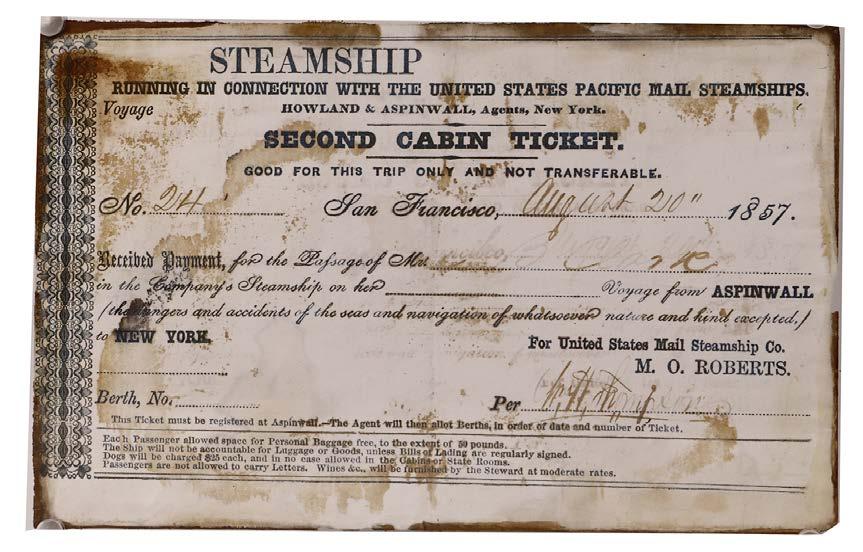 STEAMSHIP
RUNNING IN CONNECTION WITH THE UNITED STATES PACIFIC MAIL STEAMSHIPS.
Voyage
HOWLAND & ASPINWALL, Agents, New York.
SECOND CABIN TICKET.
GOOD FOR THIS TRIP ONLY AND NOT TRANSFERABLE.
No. 24 San Francisco, August 20" 1857.
Received Payment, for the Passage of Mr.
in the Company's Steamship on her Voyage from ASPINWALL
(the dangers and accidents of the seas and navigation of whatsoever nature and kind excepted,)
to NEW YORK,
For United States Mail Steamship Co.
M. O. ROBERTS.
Berth, No. Per
This Ticket must be registered at Aspinwall.—The Agent will then allot Berths, in order of date and number of Ticket.
Each Passenger allowed space for Personal Baggage free, to the extent of 50 pounds.
The Ship will not be accountable for Luggage or Goods, unless Bills of Lading are regularly signed.
Dogs will be charged $25 each, and in no case allowed in the Cabins or State Rooms.
Passengers are not allowed to carry Letters. Wines &c., will be furnished by the Steward at moderate rates.